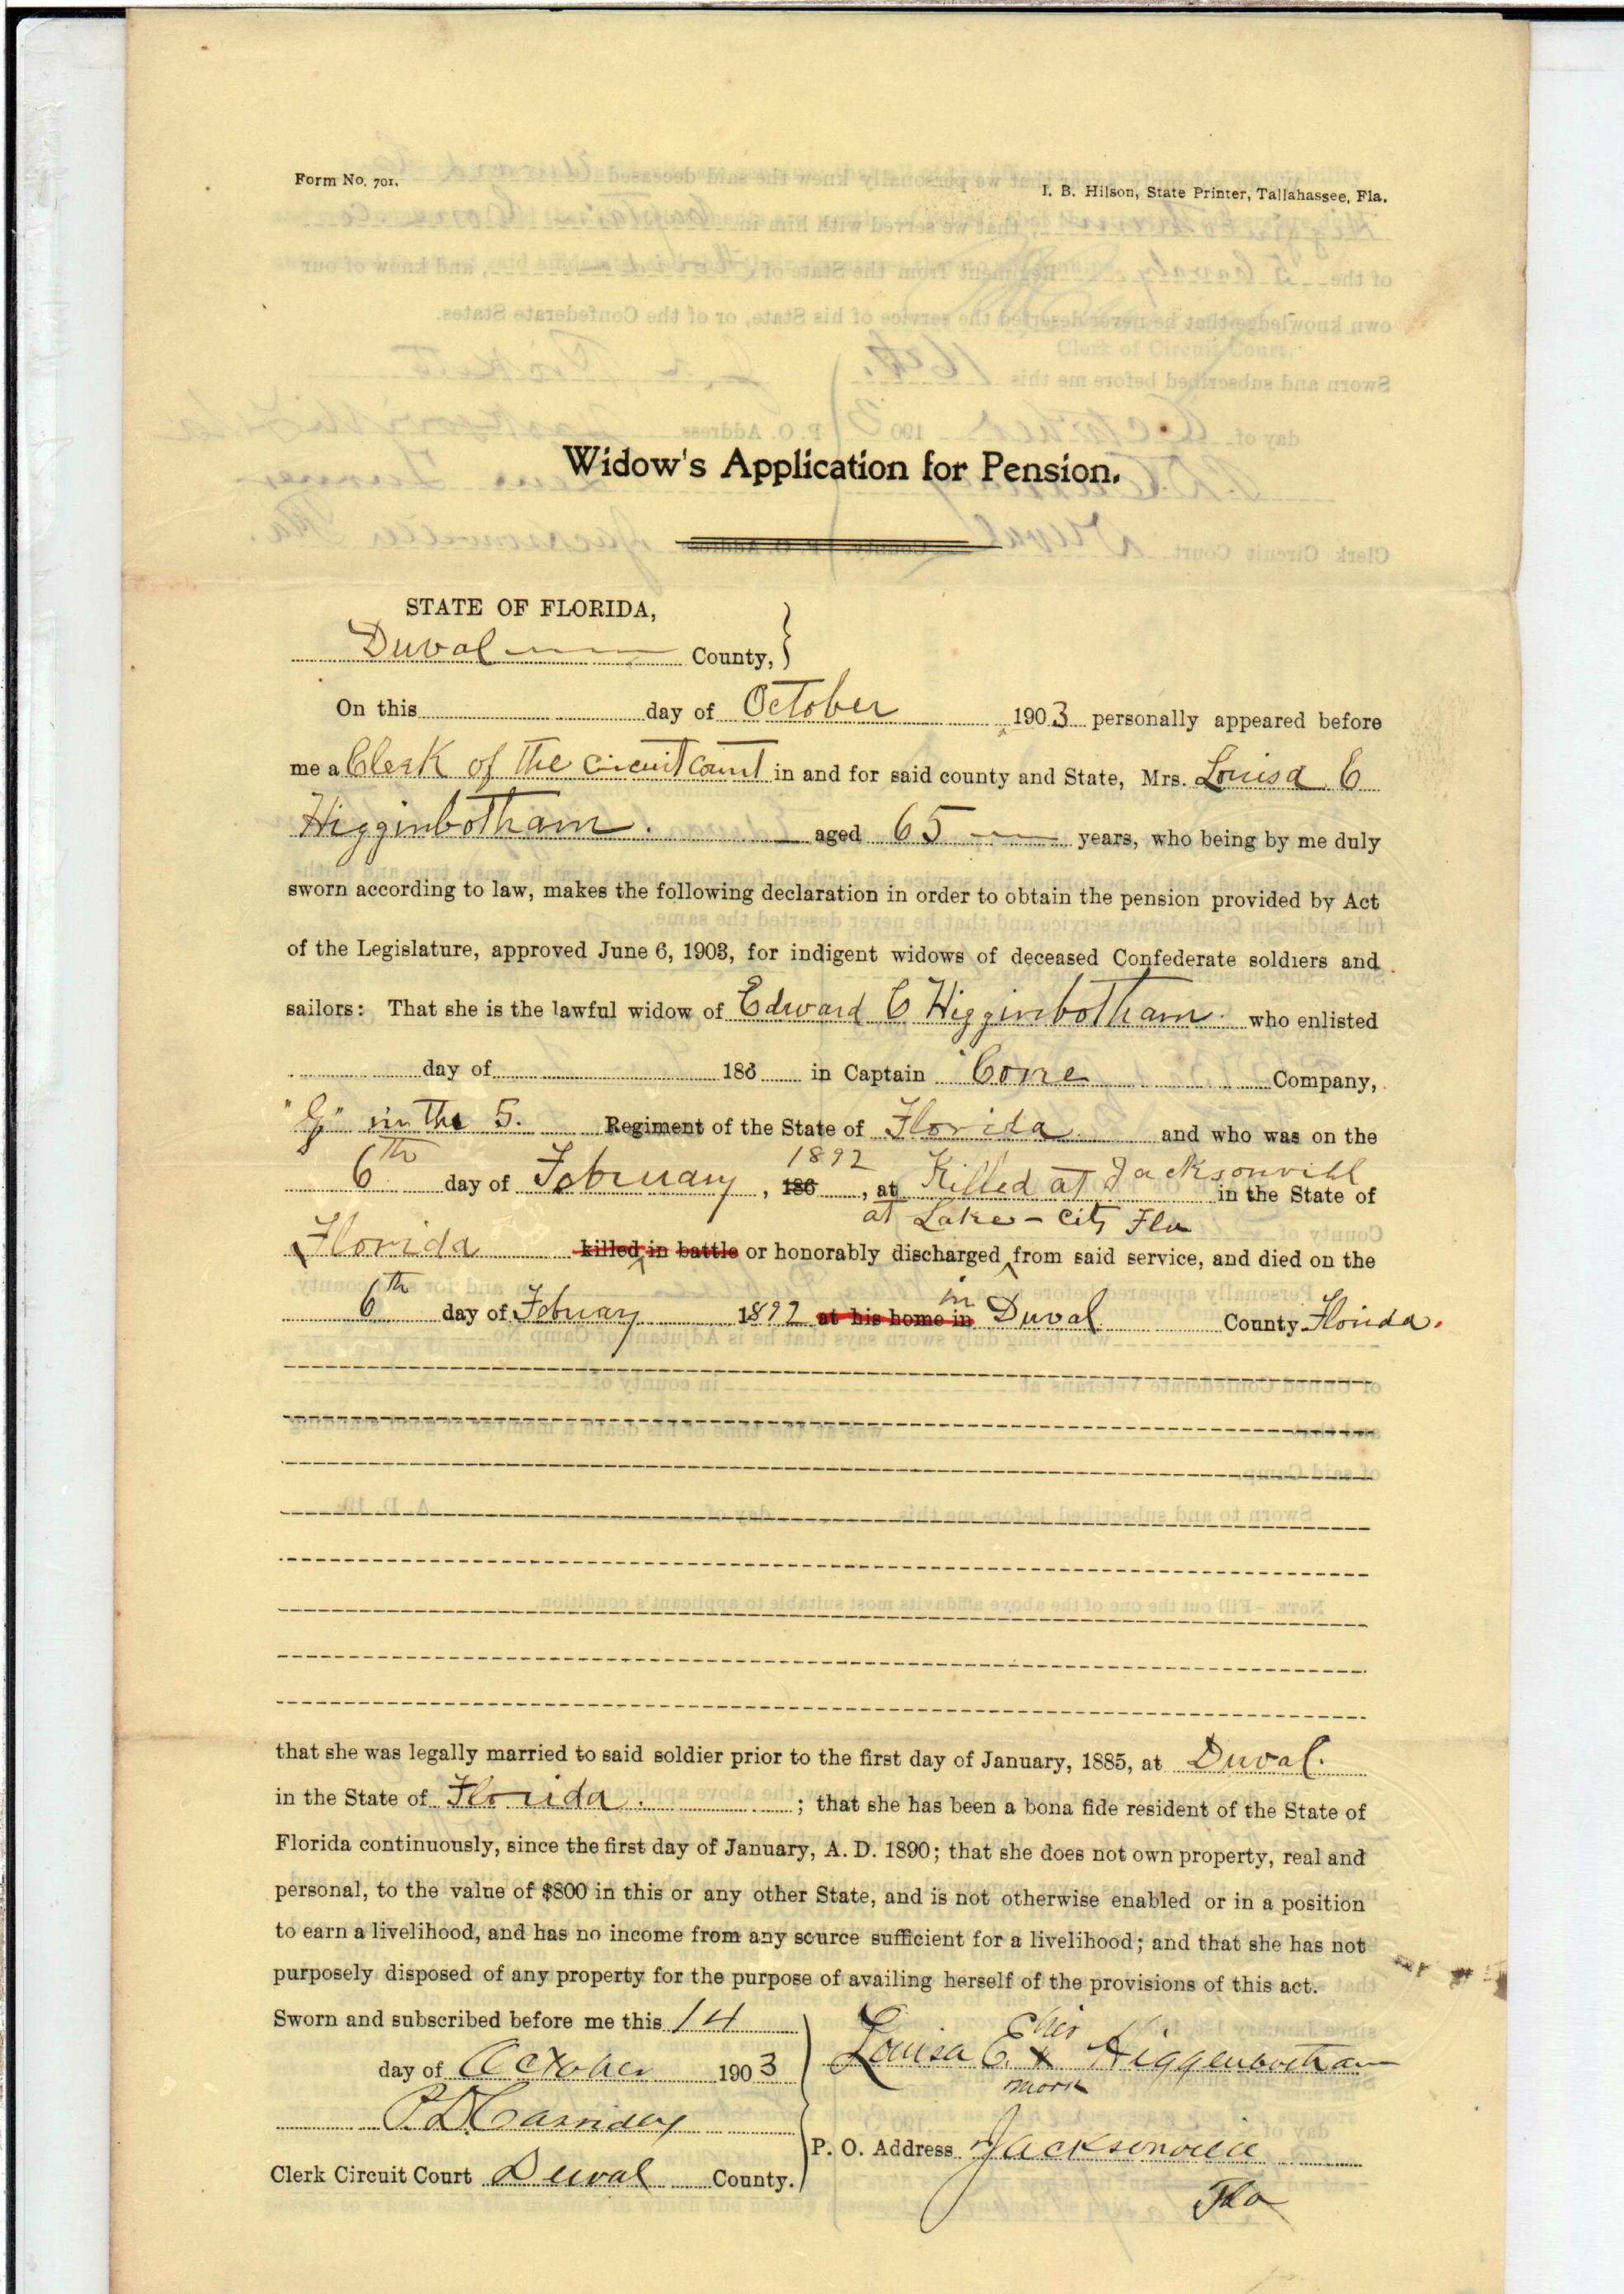 Form No. 701.
I. B. Hilson, State Printer, Tallahassee, Fla.
Widow's Application for Pension.
STATE OF FLORIDA,
Duval County,
On this day of October 1903 personally appeared before
me a Clerk of the circuit court in and for said county and State, Mrs. Louisa C
Higginbotham. aged 65 years, who being by me duly
sworn according to law, makes the following declaration in order to obtain the pension provided by Act
of the Legislature, approved June 6, 1903, for indigent widows of deceased Confederate soldiers and
sailors: That she is the lawful widow of Edward C Higginbotham. who enlisted
day of 186 in Captain Cone Company,
"G" in the 5. Regiment of the State of Florida and who was on the
1892
6th day of February, 186, at Killed at Jacksonvill in the State of
at Lake-City Fla
Florida killed in battle or honorably discharged from said service, and died on the
in
6th day of Febuary 1892 at his home in Duval County Florida.
that she was legally married to said soldier prior to the first day of January, 1885, at Duval.
in the State of Florida. ; that she has been a bona fide resident of the State of
Florida continuously, since the first day of January, A. D. 1890; that she does not own property, real and
personal, to the value of $800 in this or any other State, and is not otherwise enabled or in a position
to earn a livelihood, and has no income from any source sufficient for a livelihood; and that she has not
purposely disposed of any property for the purpose of availing herself of the provisions of this act.
Sworn and subscribed before me this 14
day of October 1903
her
Louisa C. x Higgenbotham
mark
P. D. Cassidey
P. O. Address Jacksonville
Clerk Circuit Court Duval County.
Fla